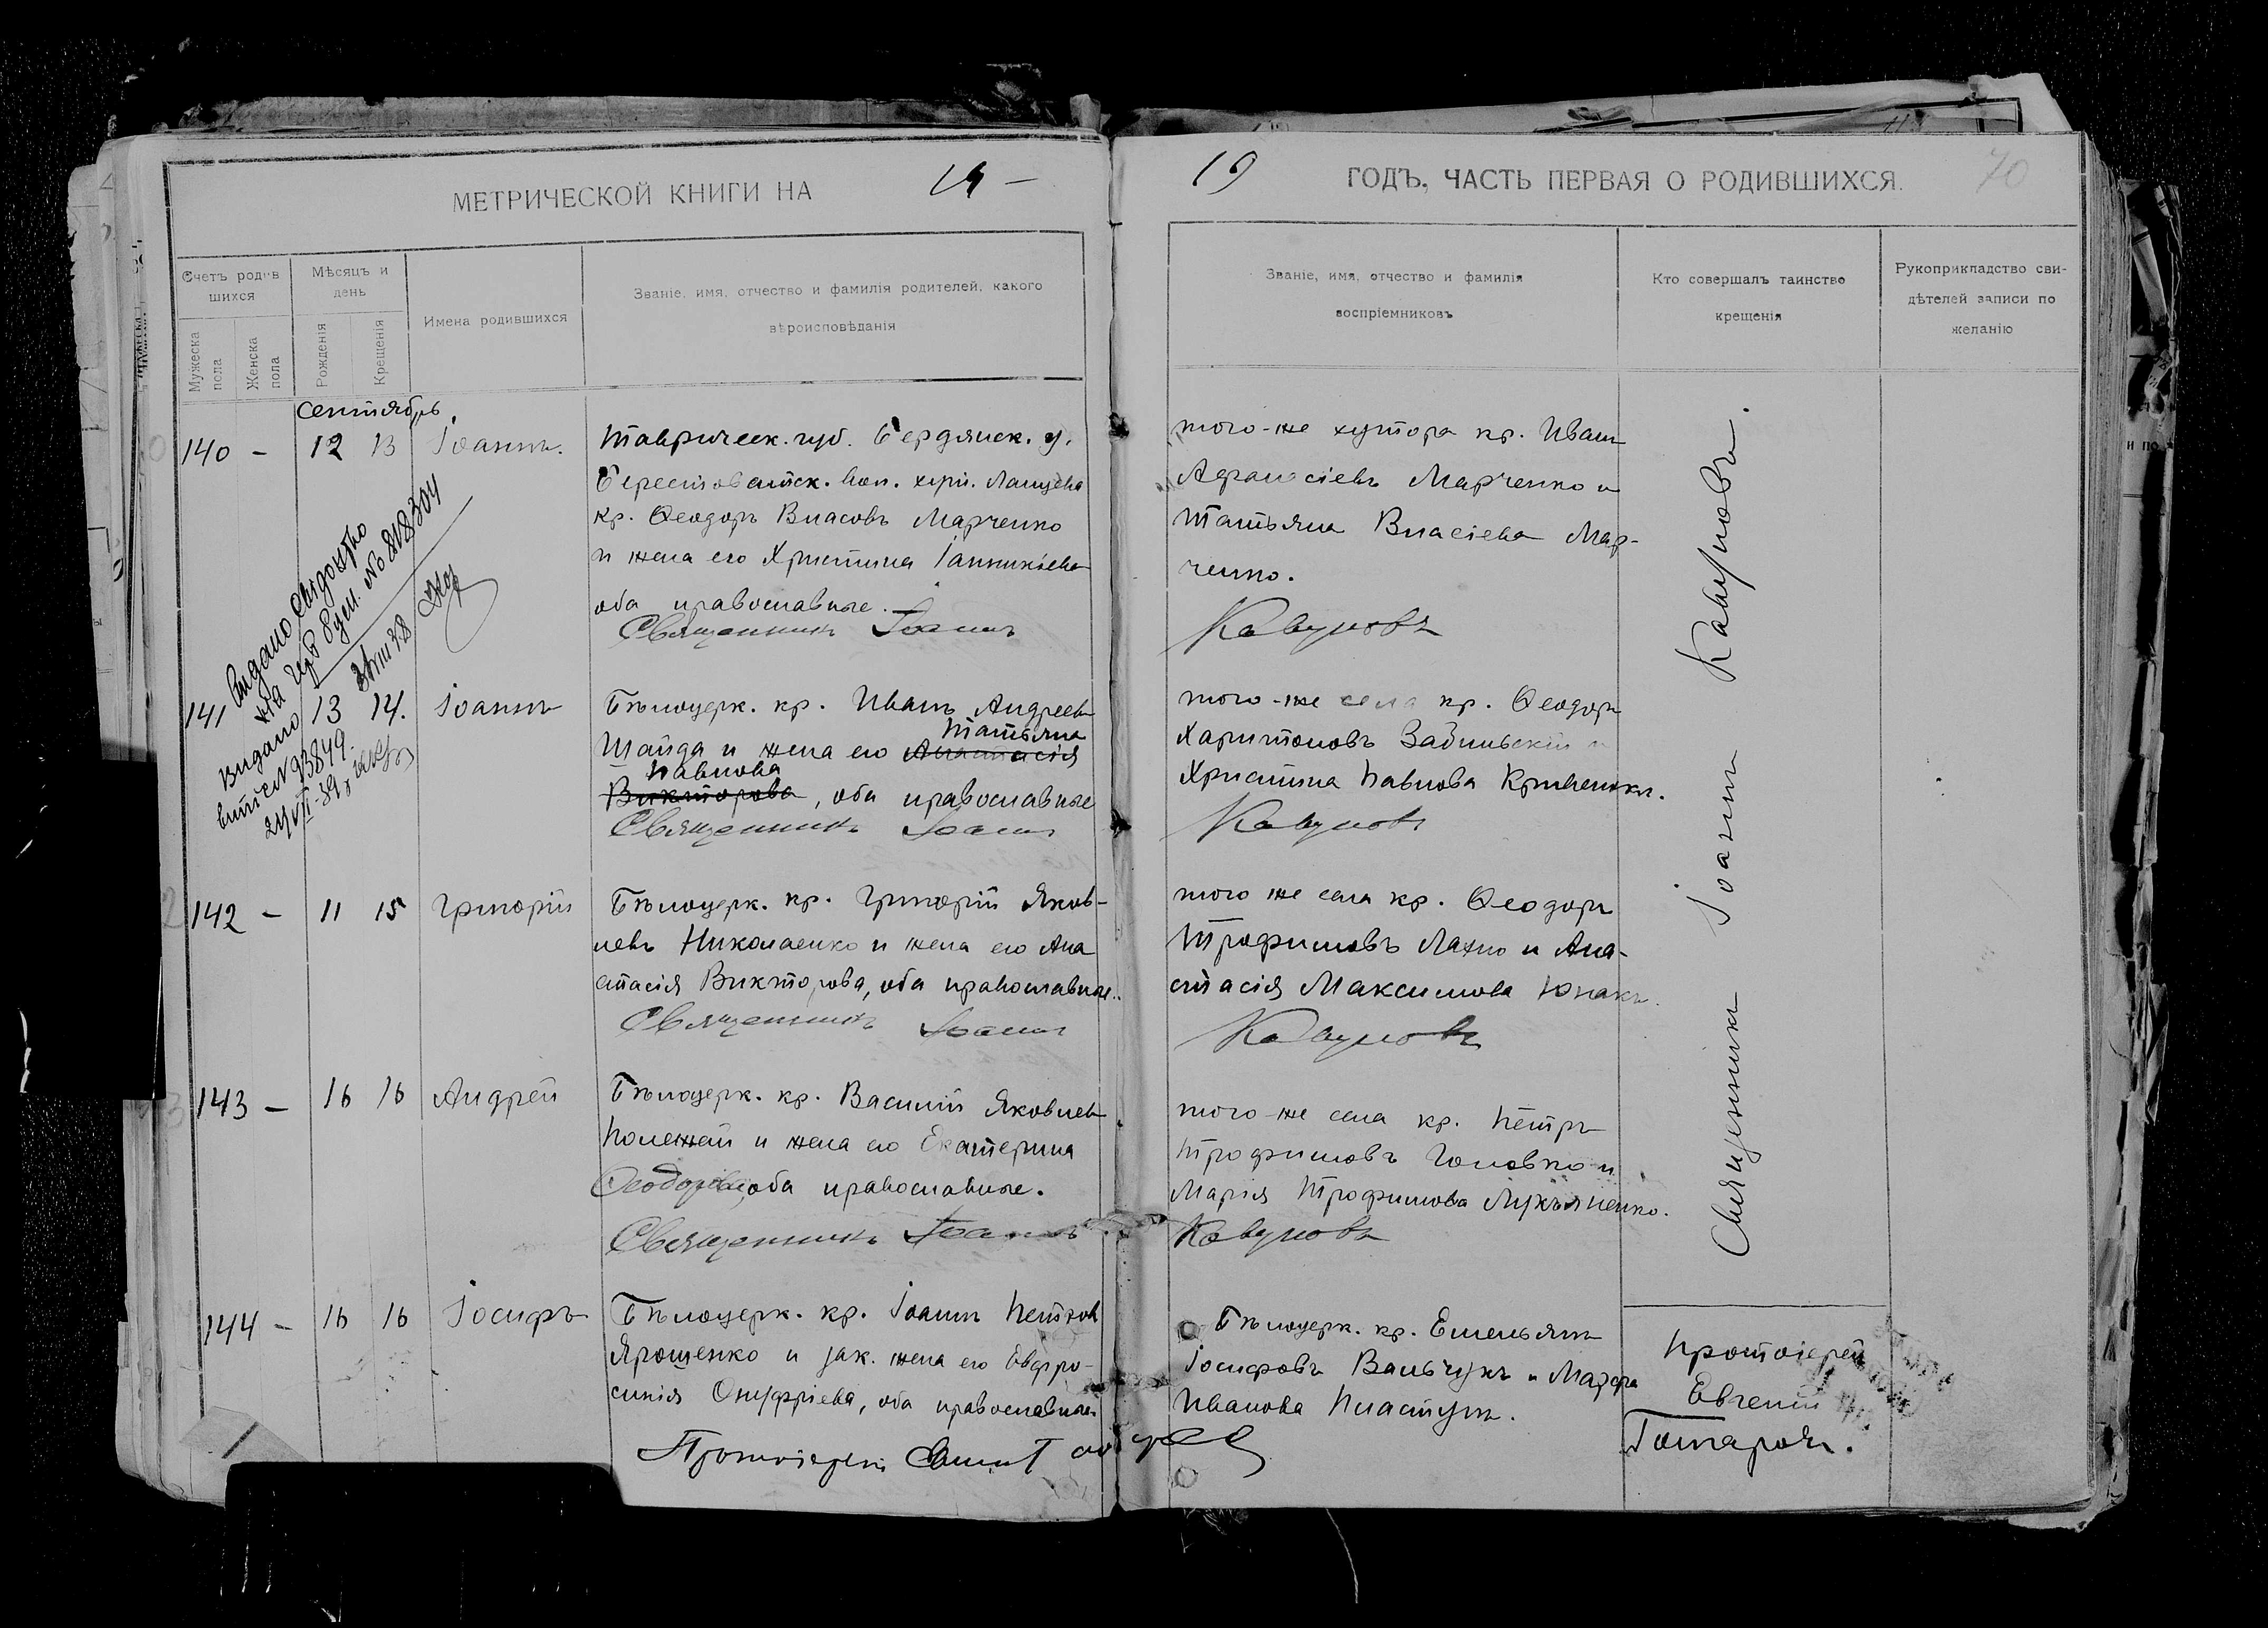 МЕТРИЧЕСКОЙ КНИГИ НА 19 —
19 ГОДЪ, ЧАСТЬ ПЕРВАЯ О РОДИВШИХСЯ.
70
Счетъ родив
шихся
Мужеска пола
Женска пола
Мѣсяцъ и
день
Рожденія
Крещенія
Имена родившихся
Званіе, имя, отчество и фамилія родителей, какого
вѣроисповѣданія
Званіе, имя, отчество и фамилія
воспріемниковъ
Кто совершалъ таинство
крещенія
Рукоприкладство сви-
дѣтелей записи по
желанію
сентябрь
140 – 12 13 Іоаннъ.
Таврическ. губ. Бердянск. у.
Берестоватск. вол. хут.
кр. Ѳеодоръ Власовъ Марченко
и жена его Христина Іанникіева
оба православные.
Священникъ Іоаннъ
того-же хутора кр. Иванъ
Афанасіевъ Марченко и
Татьяна Власіева Мар-
ченко.
Кавуновъ
Видано
141 13 14. Іоаннъ
Бѣлоцерк. кр. Иванъ Андреевъ
Татьяна
Шайда и жена его Анастасія
Павлова
Викторова, оба православные
Священникъ Іоаннъ
того-же села кр. Ѳеодоръ
Харитоновъ Забильскій и
Христина Павлова
Кавуновъ
142 – 11 15 Григорій
Бѣлоцерк. кр. Григорій Яков-
левъ Николаенко и жена его Ана
стасія Викторова, оба православные.
Священникъ Іоаннъ
того же села кр. Ѳеодоръ
Трофимовъ Лахно и Ана-
стасія Максимова Юнакъ.
Кавуновъ
143 – 16 16 Андрей
Бѣлоцерк. кр. Василій Яковлев
Полежай и жена его Екатерина
Ѳеодорова, оба православные.
Священникъ Іоаннъ
того-же села кр. Петръ
Трофимовъ Головко и
Марія Трофимова Лукьяненко.
Кавуновъ
Священникъ Іоаннъ Кавуновъ.
144 – 16 16 Іосифъ
Бѣлоцерк. кр. Іоаннъ Петров
Ярошенко и зак. жена его Евфро-
синія Онуфріева, оба православные
Протоіерей
Бѣлоцерк. кр. Емельянъ
Іосифовъ Вальчукъ и Марфа
Иванова Пластунъ.
Протоіерей
Евгеній